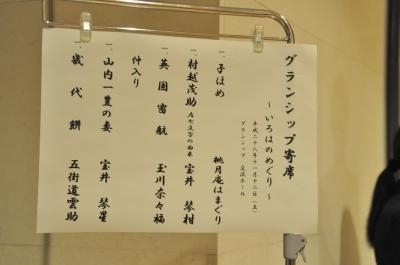 グランシップ寄席
～いろはのめぐり～
平成二十八年十一月十二日（土）
グランシップ 交流ホール
一、子ほめ 桃月庵はまぐり
一、村越茂助 左七文字の由来 宝井琴柑
一、英国密航 玉川奈々福
仲入り
一、山内一豊の妻 宝井琴星
一、幾代餅 五街道雲助